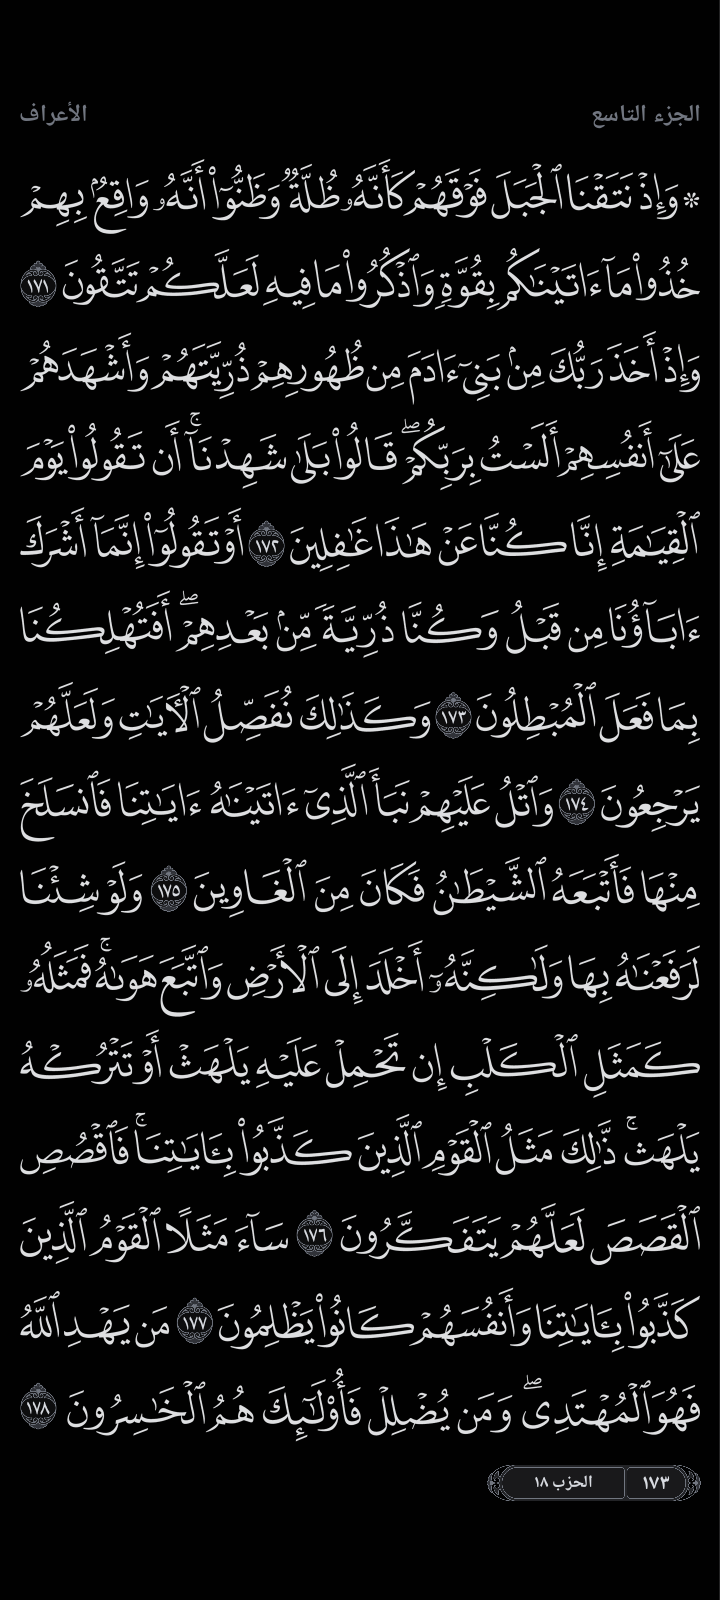 الجزء التاسع
الأعراف
۞ وَإِذۡ نَتَقۡنَا ٱلۡجَبَلَ فَوۡقَهُمۡ كَأَنَّهُۥ ظُلَّةٞ وَظَنُّوٓاْ أَنَّهُۥ وَاقِعُۢ بِهِمۡ
خُذُواْ مَآ ءَاتَيۡنَٰكُم بِقُوَّةٖ وَٱذۡكُرُواْ مَا فِيهِ لَعَلَّكُمۡ تَتَّقُونَ ١٧١
وَإِذۡ أَخَذَ رَبُّكَ مِنۢ بَنِيٓ ءَادَمَ مِن ظُهُورِهِمۡ ذُرِّيَّتَهُمۡ وَأَشۡهَدَهُمۡ
عَلَىٰٓ أَنفُسِهِمۡ أَلَسۡتُ بِرَبِّكُمۡۖ قَالُواْ بَلَىٰ شَهِدۡنَآۚ أَن تَقُولُواْ يَوۡمَ
ٱلۡقِيَٰمَةِ إِنَّا كُنَّا عَنۡ هَٰذَا غَٰفِلِينَ ١٧٢ أَوۡ تَقُولُوٓاْ إِنَّمَآ أَشۡرَكَ
ءَابَآؤُنَا مِن قَبۡلُ وَكُنَّا ذُرِّيَّةٗ مِّنۢ بَعۡدِهِمۡۖ أَفَتُهۡلِكُنَا
بِمَا فَعَلَ ٱلۡمُبۡطِلُونَ ١٧٣ وَكَذَٰلِكَ نُفَصِّلُ ٱلۡأٓيَٰتِ وَلَعَلَّهُمۡ
يَرۡجِعُونَ ١٧٤ وَٱتۡلُ عَلَيۡهِمۡ نَبَأَ ٱلَّذِيٓ ءَاتَيۡنَٰهُ ءَايَٰتِنَا فَٱنسَلَخَ
مِنۡهَا فَأَتۡبَعَهُ ٱلشَّيۡطَٰنُ فَكَانَ مِنَ ٱلۡغَاوِينَ ١٧٥ وَلَوۡ شِئۡنَا
لَرَفَعۡنَٰهُ بِهَا وَلَٰكِنَّهُۥٓ أَخۡلَدَ إِلَى ٱلۡأَرۡضِ وَٱتَّبَعَ هَوَىٰهُۚ فَمَثَلُهُۥ
كَمَثَلِ ٱلۡكَلۡبِ إِن تَحۡمِلۡ عَلَيۡهِ يَلۡهَثۡ أَوۡ تَتۡرُكۡهُ
يَلۡهَثۚ ذَّٰلِكَ مَثَلُ ٱلۡقَوۡمِ ٱلَّذِينَ كَذَّبُواْ بِـَٔايَٰتِنَاۚ فَٱقۡصُصِ
ٱلۡقَصَصَ لَعَلَّهُمۡ يَتَفَكَّرُونَ ١٧٦ سَآءَ مَثَلًا ٱلۡقَوۡمُ ٱلَّذِينَ
كَذَّبُواْ بِـَٔايَٰتِنَا وَأَنفُسَهُمۡ كَانُواْ يَظۡلِمُونَ ١٧٧ مَن يَهۡدِ ٱللَّهُ
فَهُوَ ٱلۡمُهۡتَدِيۖ وَمَن يُضۡلِلۡ فَأُوْلَٰٓئِكَ هُمُ ٱلۡخَٰسِرُونَ ١٧٨
١٧٣ الحزب ١٨